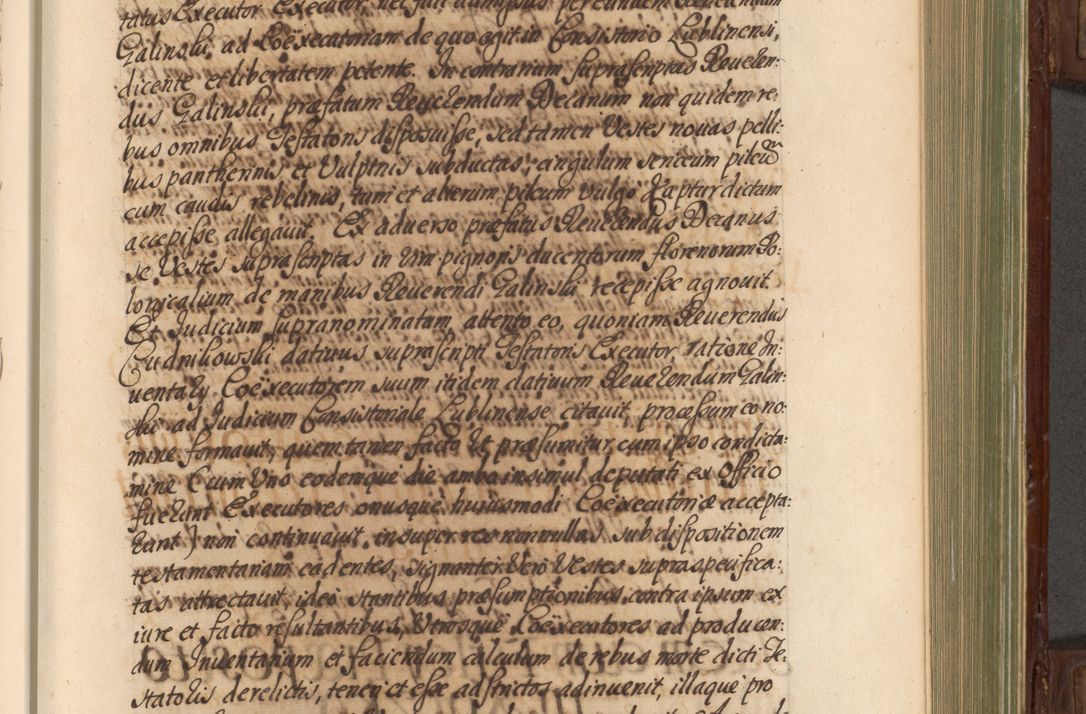 tatus Executor Executor, nec fuit admissus per eundem Reverendum
Galinski, ad Coëxecutoriam de quo egit in Consistorio Lublinensi,
dicente et libertatem petente. In contrarium suprascriptus Reveren:
dus Galinski, præfatum Reverendum Decanum non quidem re:
bus omnibus Testatoris disposuisse, sed tamen Vestes novas pelli:
bus pantherinis et Vulpinis subductas, cingulum sericeum pileũ
cum caudis zebelinis, tum et alterum pileum vulgo Kaptur dictum
accepisse allegavit. Ex adverso præfatus Reverendus Decanus
se Vestes suprascriptas in vim pignoris ducentorum florenorum Po:
lonicalium de manibus Reverendi Galinski recepisse agnovit.
Et Judicium supranominatum, attento eo, quoniam Reverendus
Cudnikowski dativus suprascripti Testatoris Executor ratione In:
ventarij Coëxecutorem suum itidem dativum Reverendum Galin:
ski ad Judicium Consistoriale Lublinense citavit, processum eo no:
mine formavit, quem tamen facto ut præsumitur cum ipso condicta:
mine (cum Uno eodemque die ambo insimul deputati ex Officio
fuerunt Executores onusque huiusmodi Coëxecutoriæ accepta:
runt) non continuavit, insuper res nonnullas sub dispositionem
testamentariam cadentes, signanter Vero Vestes supraspecifica:
tas attrectavit, ideo stantibus præsumptionibus contra ipsum ex
iure et facto resultantibus, Utrosque Coëxecutores ad producen:
dum Inventarium et faciendum calculum de rebus morte dicti Te:
statoris derelictis, teneri et esse adstrictos adinvenit, illaque pro